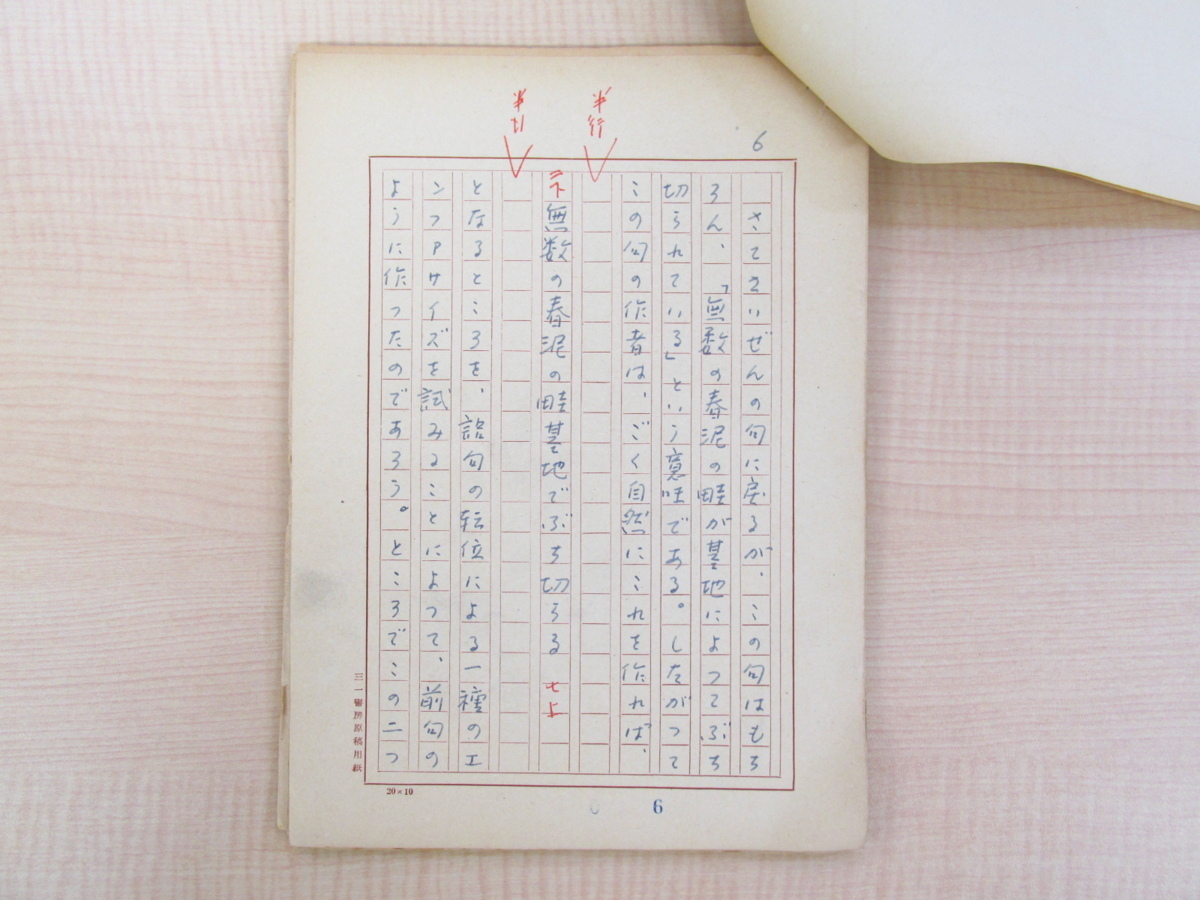 6
さてさいぜんの句に戻るが、この句はもち
ろん、「無数の春泥の畦が墓地によつてぶち
切られている」という意味である。したがつて
この句の作者は、ごく自然にこれを作れば、
半行
無数の春泥の畦墓地でぶち切らる
半行
となるところを、語句の転位による一種のエ
ンファサイズを試みることによつて、前句の
ように作つたのであろう。ところでこの二つ
三一書房原稿用紙
20×10
6